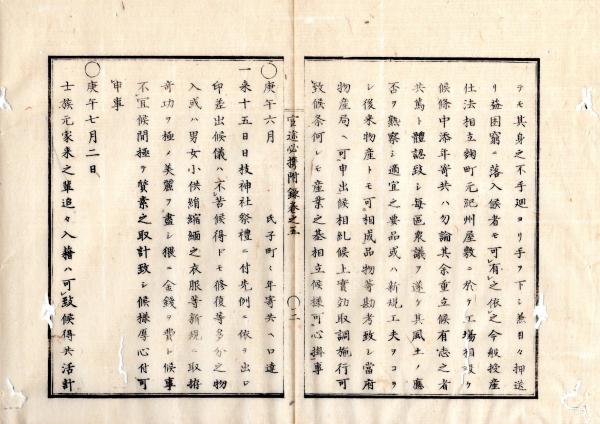 テモ其身之不手廻ヨリ手ヲ下シ兼日々押送
リ益困窮ニ落入候者モ可有之依之今般授産
仕法相立麹町元紀州屋敷ニ於テ工場相設ケ
候條中添年寄共ハ勿論其余重立候有志之者
共篤ト體認致シ每區衆議ヲ遂ケ其風土ノ應
否ヲ熟察シ適宜之要品或ハ新規工夫ヲコラ
シ後来物産トモ可相成品物等勘考致シ當府
物産局ヘ可申出候相糺候上實効取調施行可
致候条何レモ産業之基相立候様可心掛事
官途必携附錄卷之五
二
○庚午六月
氏子町々年寄共ヘ口達
一来十五日日枝神社祭禮ニ付先例ニ依ヲ出口
印差出候儀ハ不苦候得ドモ修復等多分之物
入或ハ男女小供絹縮緬之衣服等新規ニ取拵
奇功ヲ極メ美麗ヲ盡シ猥ニ金錢ヲ費シ候事
不宜候間極ヲ質素之取計致シ候様厚心付可
申事
○庚午七月二日
士族元家来之輩追々入籍ハ可致候得共活計